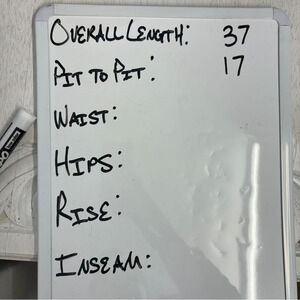 OVERALL LENGTH: 37
PIT TO PIT: 17
WAIST:
HIPS:
RISE:
INSEAM: